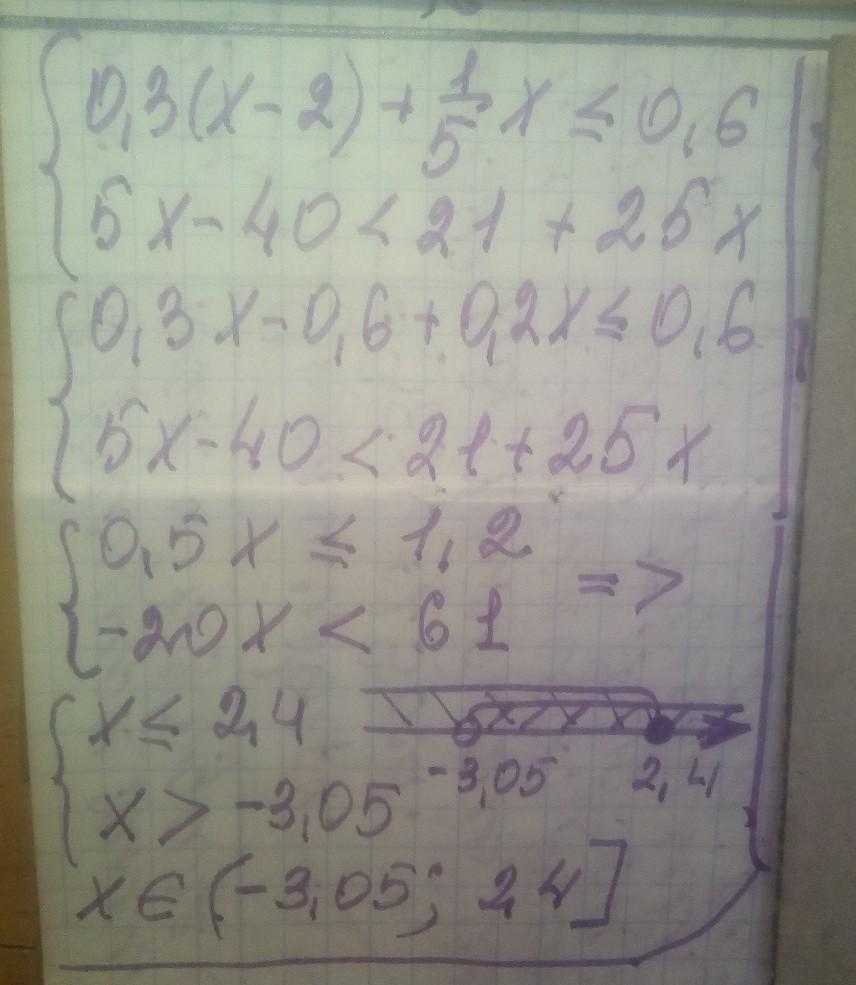 0,3(x-2)+1/5 x ≤ 0,6
5x-40<21+25x
0,3x-0,6+0,2x≤0,6
5x-40<21+25x
0,5x ≤ 1,2
-20x < 61 =>
x ≤ 2,4
-3,05 2,4
x > -3,05
x ∈ (-3,05; 2,4]